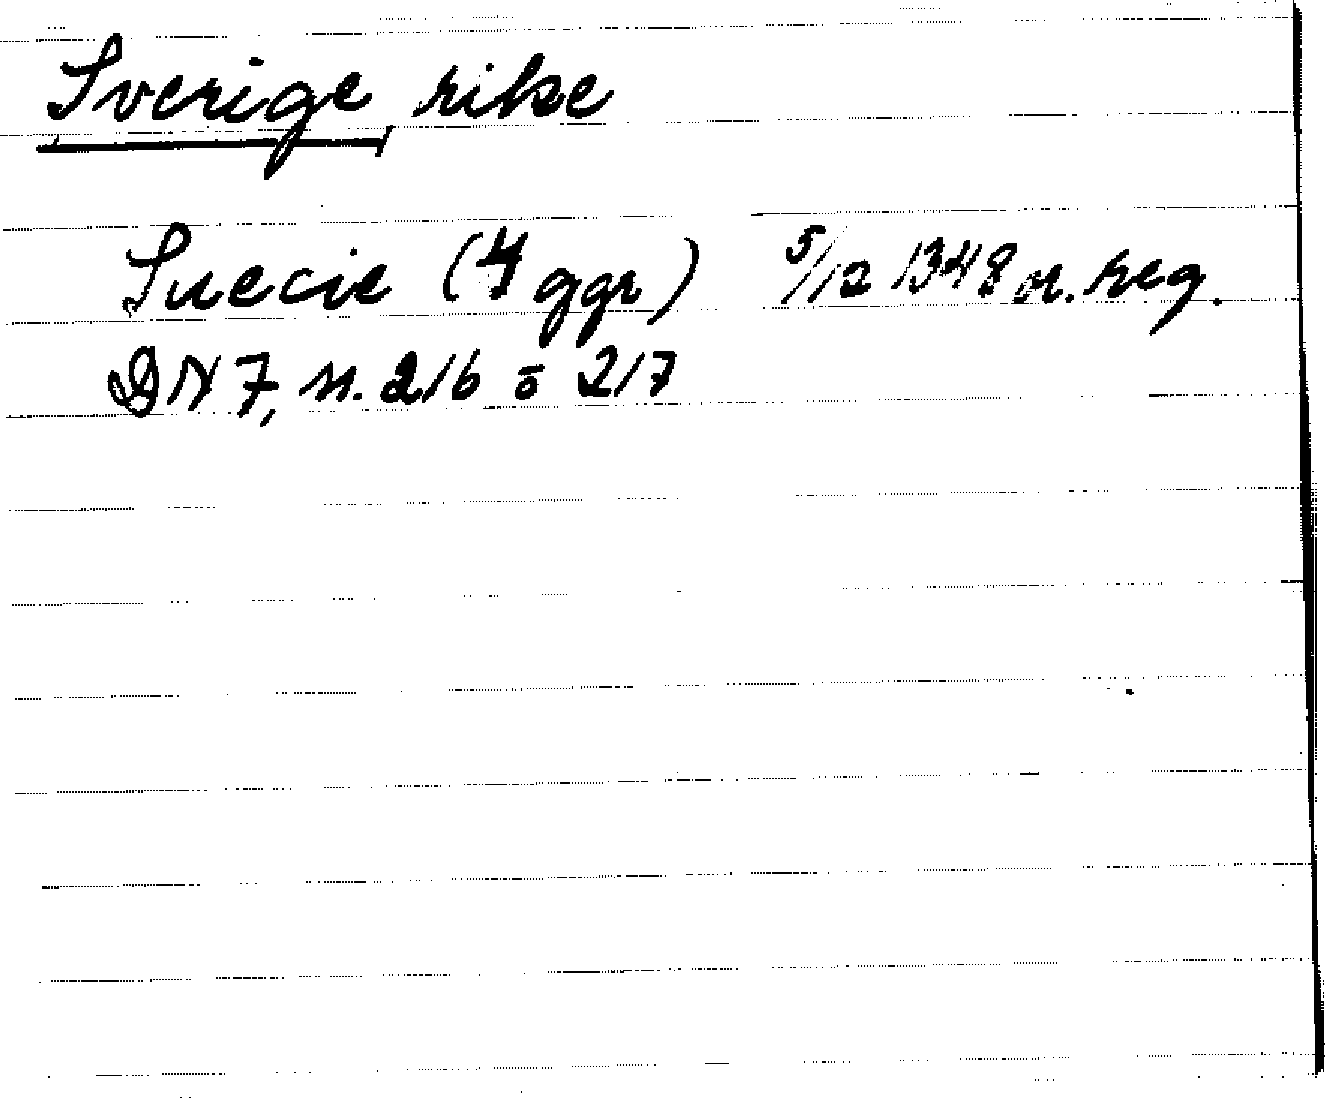 Sverige, rike
Suecie (4 ggr) 5/12 1348 or. reg.
DN 7, n. 216 o 217